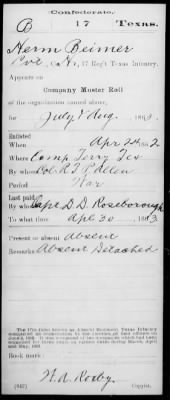 Confederate.
B 17 Texas.
Herm Beimer
Pvt, Co. H, 17 Reg't Texas Infantry.
Appears on
Company Muster Roll
of the organization named above,
for July & Aug, 1863.
Enlisted:
When Apr 24, 1862
Where Camp Terry Tex
By whom Col. R T P Allen
Period War
Last paid:
By whom Capt. D. D. Roseborough
To what time Apl 30, 1863.
Present or absent Absent
Remarks: Absent Detached
Book mark:
W. A. Roxby
(642) Copyist.